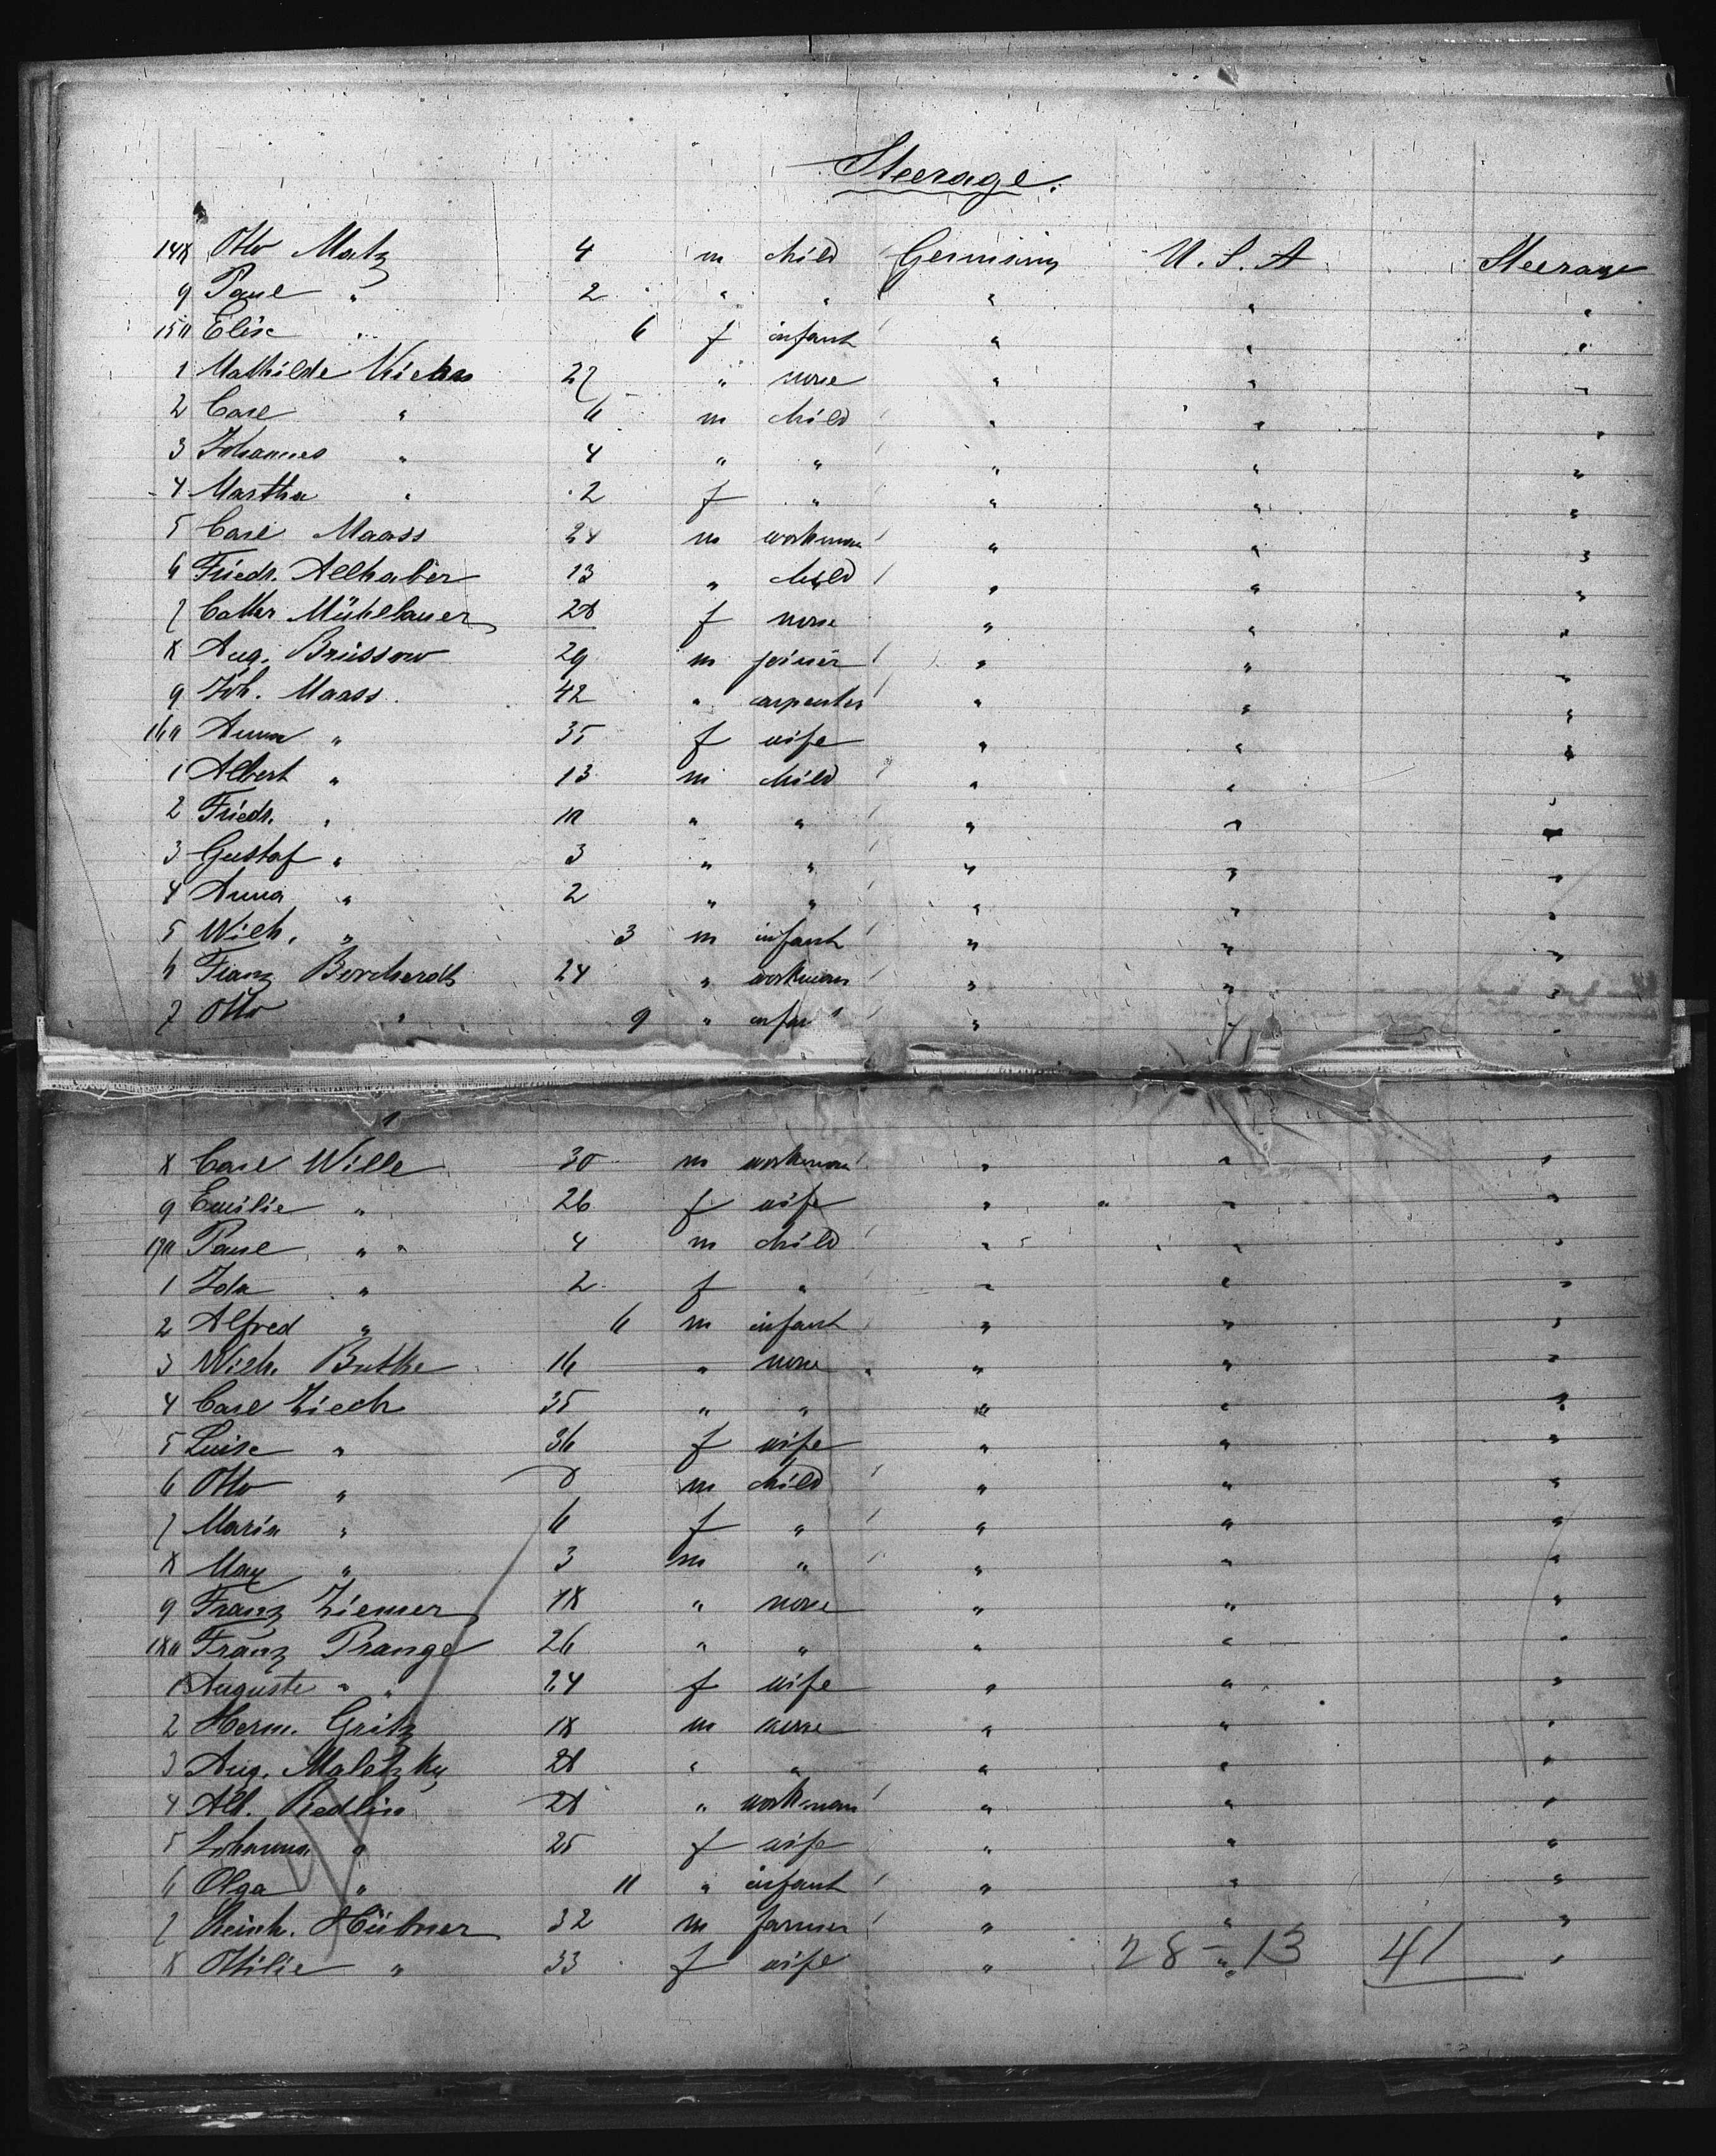 Steerage.
148 Otto Matz 4 m child Germany U. S. A Steerage
9 Paul " 2 " " " " "
150 Elise " 6 f infant " " "
1 Mathilde 27 " none " " "
2 Carl " 6 m child " " "
3 Johannes " 4 " " " " "
4 Martha " 2 f " " " "
5 Carl Maass 24 m workman " " "
6 Friedr. Allhaber 13 " child " " "
7 Cathr. Mühlbauer 28 f none " " "
8 Aug. Brüssow 29 m joiner " " "
9 Joh. Maass 42 " carpenter " " "
160 Anna " 35 f wife " " "
1 Albert " 13 m child " " "
2 Friedr. " 10 " " " " "
3 Gustaf " 3 " " " " "
4 Anna " 2 " " " " "
5 Wilh. " 3 m infant " " "
6 Franz Borcherdt 24 " workman " " "
7 Otto " 9 " infant " " "
8 Carl Wille 30 m workman " " "
9 Emilie " 26 f wife " " "
170 Paul " 4 m child " " "
1 Ida " 2 f " " " "
2 Alfred " 6 m infant " " "
3 Wilh. Butke 16 " none " " "
4 Carl Ziech 35 " " " " "
5 Luise " 36 f wife " " "
6 Otto " 8 m child " " "
7 Maria " 6 f " " " "
8 Max " 3 m " " " "
9 Franz Ziemer 18 " none " " "
180 Franz Prange 26 " " " " "
1 Auguste " 24 f wife " " "
2 Herm. Gritz 18 m none " " "
3 Aug. Maletzky 28 " " " " "
4 Alb. Redlin 28 " workman " " "
5 Johanna " 25 f wife " " "
6 Olga " 11 " infant " " "
7 Reinh. Hübner 32 m farmer " " "
8 Ottilie " 33 f wife " " "
28 - 13 41